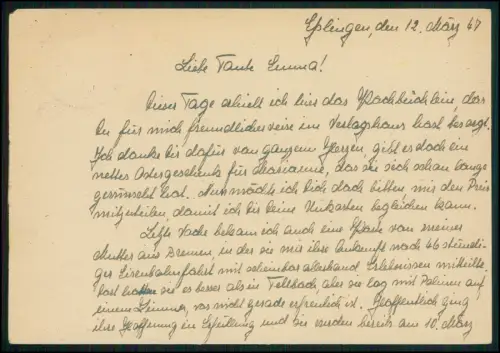 Eßlingen, den 12. März 47
Liebe Tante Emma!
Dieser Tage erhielt ich hier das Kochbüchlein, das
Du für mich freundlicherweise im Verlagshaus hast besorgt.
Ich danke Dir dafür von ganzem Herzen, gibt es doch ein
nettes Ostergeschenk für Marianne, das sie sich schon lange
gewünscht hat. Nun möchte ich Dich doch bitten mir den Preis
mitzuteilen, damit ich Dir Deine Unkosten begleichen kann.
Letzte Woche bekam ich auch eine Karte von meiner
Mutter aus Bremen, in der sie mir ihre Ankunft nach 46 stündi-
ger Eisenbahnfahrt mit scheinbar allerhand Erlebnissen mitteilte.
hatten sie es besser als in Fellbach, aber sie lag mit auf
einem Zimmer, was nicht gerade erfreulich ist. Hoffentlich ging
ihre Hoffnung in Erfüllung und sie wurden bereits am 10. März